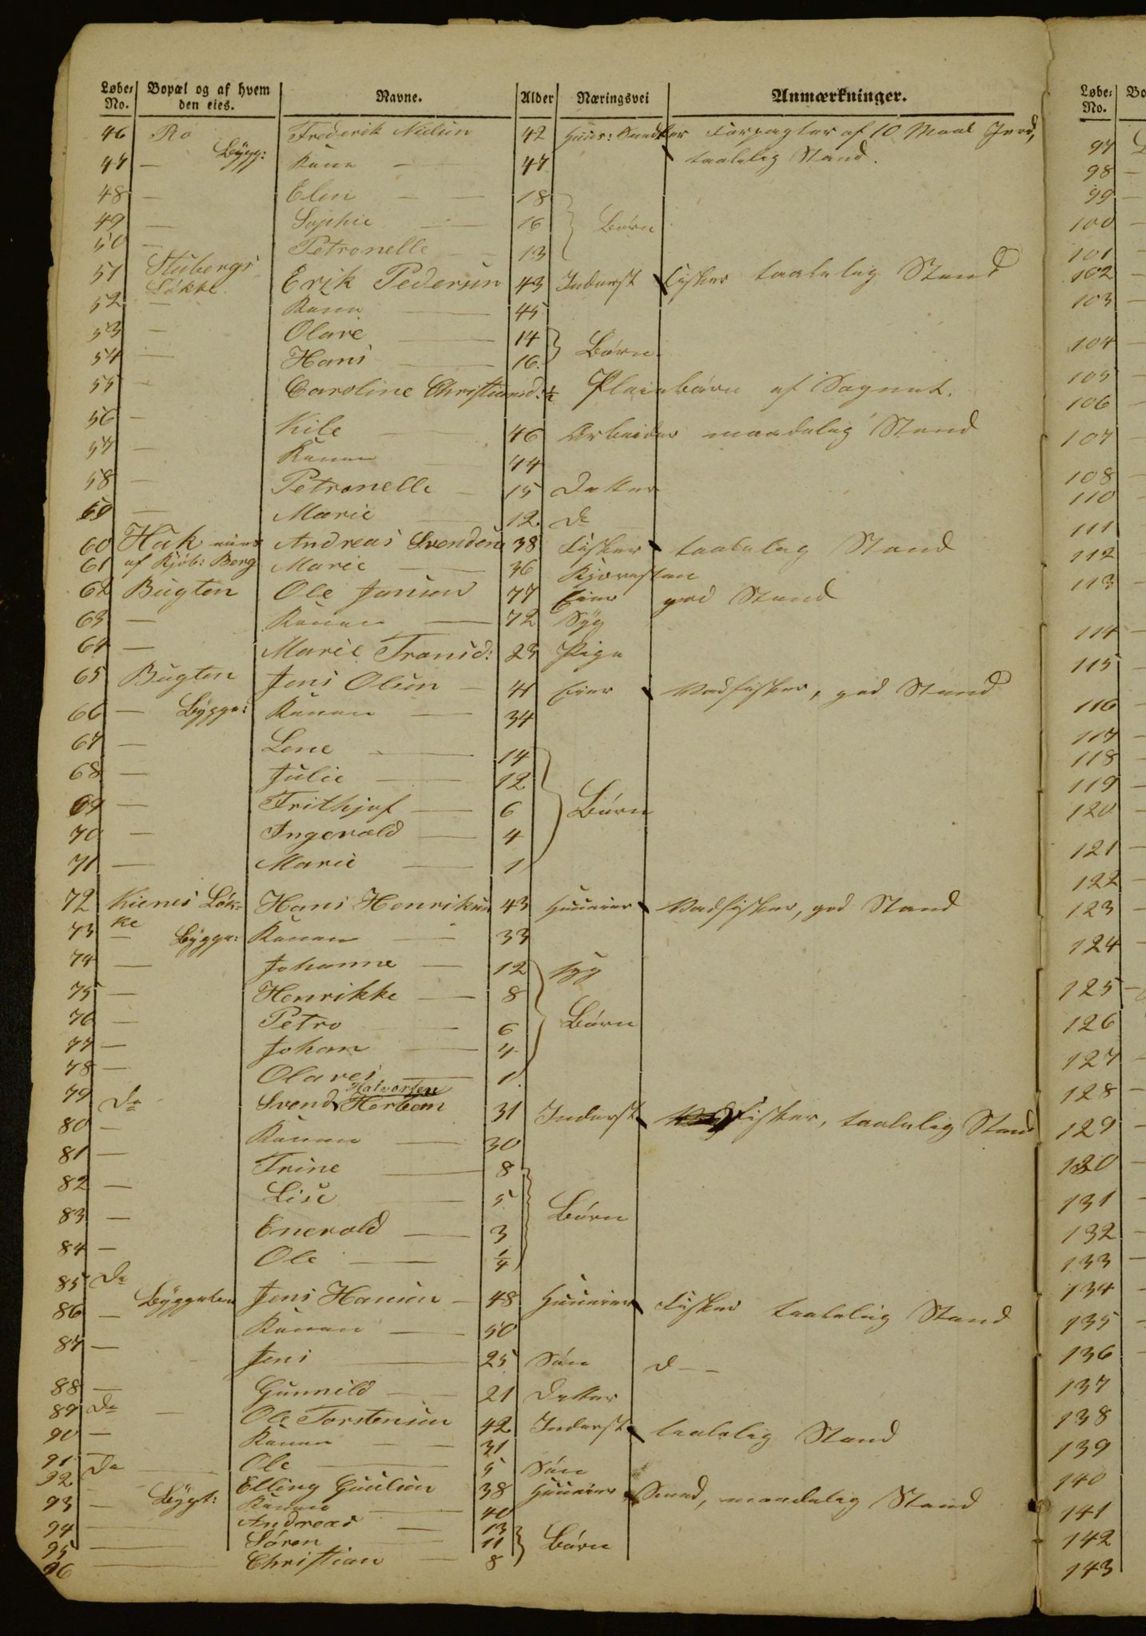 Løbe- No. Bopæl og af hvem den eies. Navne. Alder Næringsvei Anmærkninger.
46 Ro Frederik Nielsen 42 Forpagter af 10 Maal Jord,
47 — Bygg: Konen — 47 taalelig Stand.
48 — Elen — — 18
49 — Sophie — 16 Børn
50 — Petronelle — 13
51 Stubergs Løkke Erik Pedersen 43 Inderst Fisker taalelig Stand
52 — Konen — 45
53 — Olave — 14
54 — Hans — 16 Børn
55 — Caroline Christiansd: ½ Pleiebørn af Sognet.
56 — Kile — 46 Arbeider maadelig Stand
57 — Konen 44
58 — Petronelle — 15 Datter
59 — Marie 12 do
60 Hak Andreas Svendsen 38 Fisker taalelig Stand
61 af Kjøb: Berg Marie — 36 Kjæresten
62 Bugten Ole Jensen 77 Eier god Stand
63 — Konen — 72 Syg
64 — Marie Fransd: 23 Pige
65 Bugten Jens Olsen — 41 Eier Vadfisker, god Stand
66 — Bygge: Konen — 34
67 — Lene — 14
68 — Julie — 12
69 — Frithjof — 6 Børn
70 — Ingevald — 4
71 — Marie — 1
72 Kienes Løk- Hans Henriksen 43 Huuseier Vadfisker, god Stand
ke
73 — Bygge: Konen — 33
74 — Johanne — 12 syg
75 — Henrikke — 8
76 — Petro — 6 Børn
77 — Johan — 4
78 — Olaves — 1
Halvorsen
79 do Svend 31 Inderst Fisker, taalelig Stand
80 — Konen — 30
81 — Trine — 8
82 — Lise — 5
83 — Enevold — 3 Børn
84 — Ole — ¼
85 do Byggselen Jens Hansen — 48 Huuseier Fisker taalelig Stand
86 — Konen — 50
87 — Jens — 25 Søn d — —
88 — Gunnild — 21 Datter
89 do — Ole Torstensen 42 Inderst taalelig Stand
90 — Konen — 31
91 — Ole — 5 Søn
92 do — Elling 38 Huuseier Smed, maadelig Stand
93 — Bygs: Konen — 40
94 — Andreas — 13
95 — Søren — 11 Børn
96 — Christian — 8
Løbe- No. Bo
97
98 —
99 —
100 —
101 —
102 —
103 —
104 —
105 —
106 —
107 —
108 —
110 —
111 —
112 —
113 —
114 —
115 —
116 —
117 —
118 —
119 —
120 —
121 —
122 —
123 —
124 —
125 —
126 —
127 —
128 —
129 —
130 —
131 —
132 —
133 —
134 —
135 —
136 —
137 —
138 —
139 —
140 —
141 —
142 —
143 —